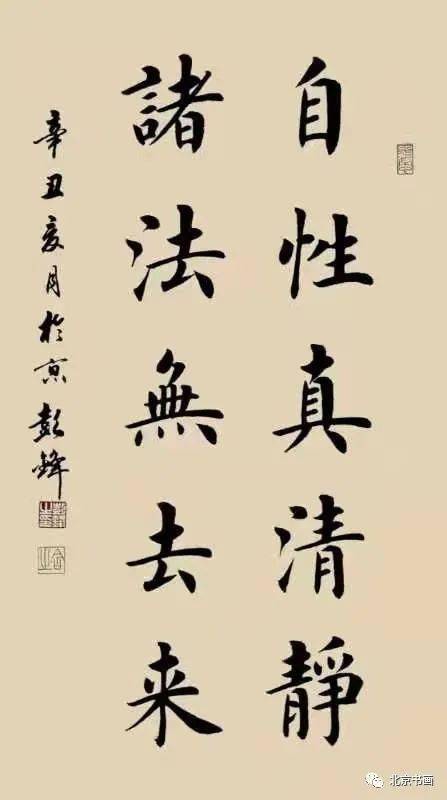 自性真清靜
諸法無去来
辛丑亥月於京彭鋒
北京书画